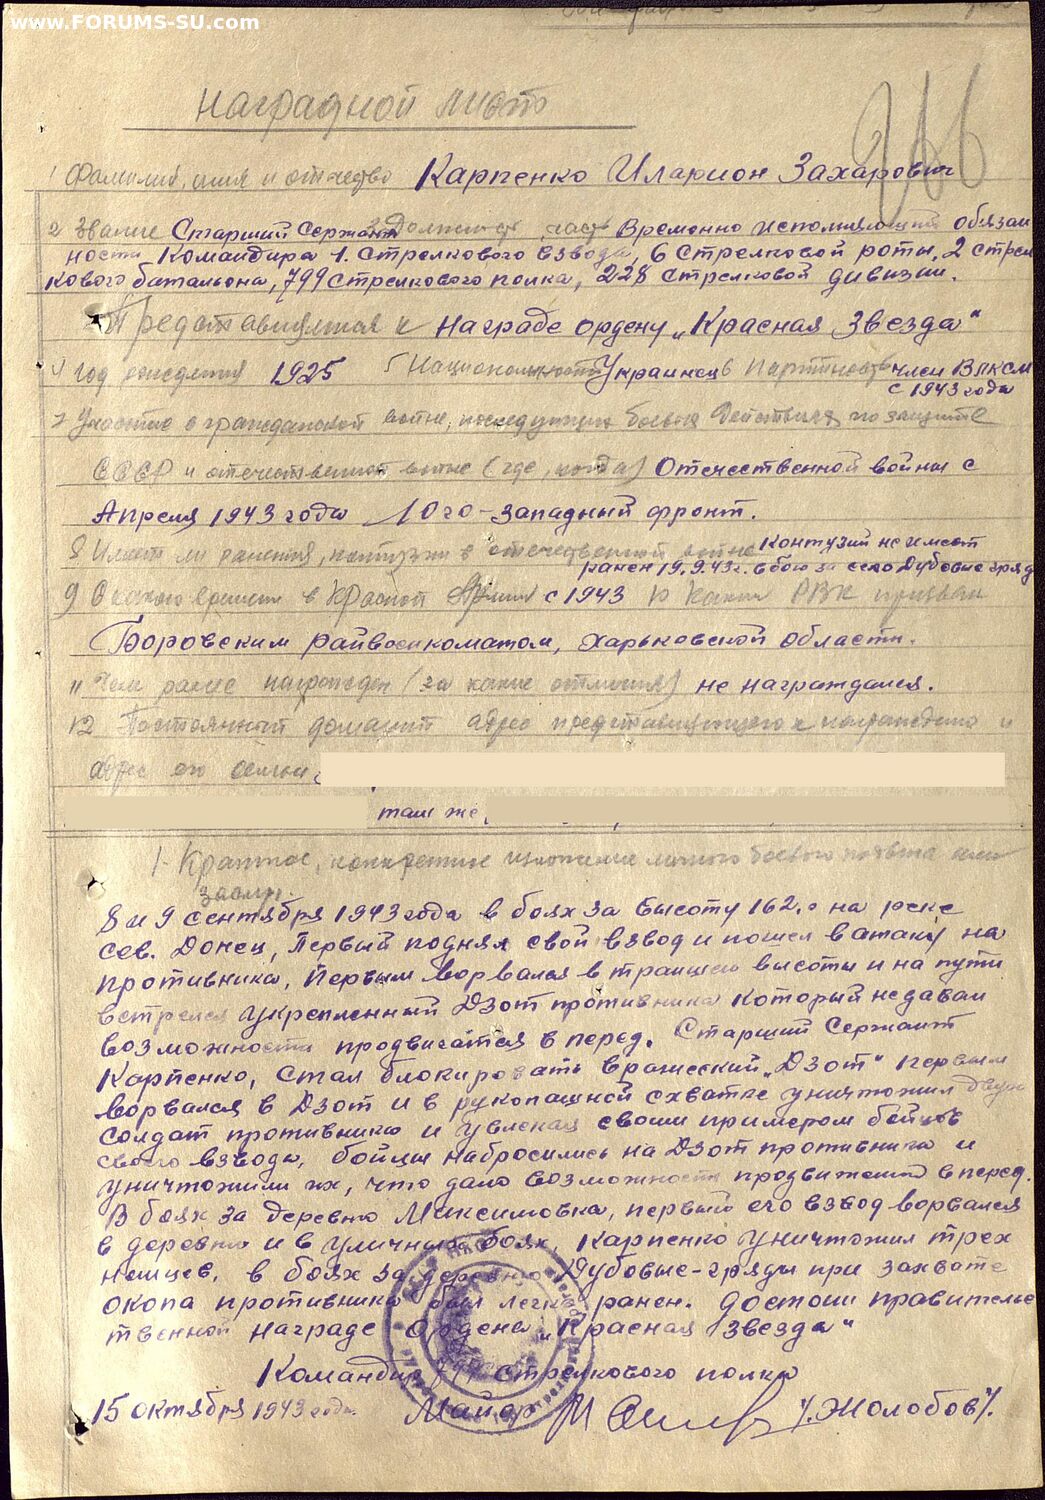 www.FORUMS-SU.com
266
Наградной лист
1 Фамилия, имя и отчество Карпенко Иларион Захарович
2 Звание Старший Сержант 3 Должность часть Временно исполняющий обязан
ности Командира 1. стрелкового взвода, 6 стрелковой роты, 2 стрел
кового батальона, 799 стрелкового полка, 228 стрелковой дивизии.
Представляется к награде ордену „Красная Звезда"
4 год рождения 1925 5 Национальность Украинец 6 Партийность член ВЛКСМ
с 1943 года
7 Участие в гражданской войне, последующих боевых действиях по защите
СССР и отечественной войне (где, когда) Отечественной войны с
Апреля 1943 года Юго-Западный фронт.
8 Имеет ли ранения, контузии в отечественной войне контузий не имеет
ранен 19.9.43г. в бою за село Дубовые гряд
9 С какого времени в Красной Армии с 1943 10 Каким РВК призван
Боровским райвоенкоматом, Харьковской области.
11 Чем ранее награжден (за какие отличия) не награждался.
12 Постоянный домашний адрес представляющего к награждению и
адрес его семьи
там же,
1. Краткое, конкретное изложение личного боевого подвига или
заслуг.
8 и 9 сентября 1943 года в боях за высоту 162.0 на реке
сев. Донец, Первый поднял свой взвод и пошел в атаку на
противника, Первым ворвался в траншею высоты и на пути
встретил укрепленный Дзот противника который не давал
возможности продвигатся в перед. Старший Сержант
Карпенко, стал блокировать вражеский „Дзот" первым
ворвался в Дзот и в рукопашной схватке уничтожил двух
солдат противника и увлекая своим примером бойцов
своего взвода, бойцы набросились на Дзот противника и
уничтожили их, что дало возможность продвижений в перед.
В боях за деревню Максимовка, первый его взвод ворвался
в деревню и в уличных боях Карпенко уничтожил трех
немцев, в боях за деревню Дубовые-гряды при захвате
окопа противника был легко ранен. достоин правительс
твенной награде ордена „Красная звезда"
Командир 799 стрелкового полка
15 октября 1943 года. Майор /Жолобов/.